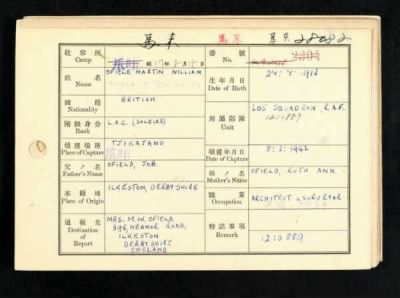 馬来 馬来
收容所
Camp
昭17年8月15日
番號
No.
姓名
Name
OFIELD, MARTIN WILLIAM
生年月日
Date of Birth
國籍
Nationality
BRITISH
所屬部隊
Unit
605 SQUADRON, R.A.F.
階級身分
Rank
L.A.C. (SOLDIER)
捕獲場所
Place of Capture
TJIKATANO
捕獲年月日
Date of Capture
8. 3. 1942
父ノ名
Father's Name
OFIELD, JOB.
母ノ名
Mother's Name
OFIELD, RUTH ANN
本籍地
Place of Origin
ILKESTON, DERBYSHIRE
職業
Occupation
ARCHITECT & SURVEYOR
通報先
Destination of Report
MRS. M.W. OFIELD
395, HEANOR ROAD,
ILKESTON
DERBYSHIRE
ENGLAND
特記事項
Remark
1210889